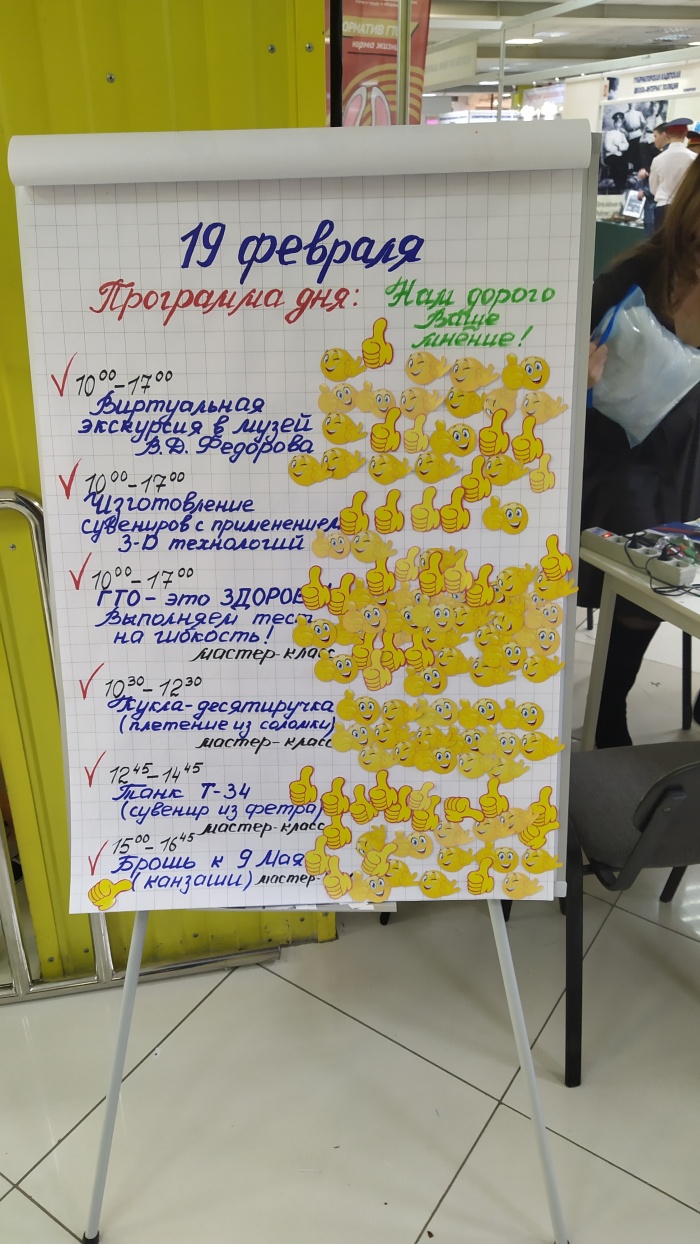 ОРМАТИВ ГТО
норма жизни
ГУБЕРНАТОРСКАЯ КАДЕТСКАЯ
ШКОЛА-ИНТЕРНАТ ПОЛИЦИИ
19 февраля
Программа дня:
Нам дорого
Ваше
мнение!
10⁰⁰-17⁰⁰
Виртуальная
экскурсия в музей
В.Д. Федорова
10⁰⁰-17⁰⁰
Изготовление
сувениров с применением
3-D технологий
10⁰⁰-17⁰⁰
ГТО - это ЗДОРОВ
Выполняем тест
на гибкость!
мастер-класс
10³⁰-12³⁰
Кукла-десятиручка
(плетение из соломки)
мастер-класс
12⁴⁵-14⁴⁵
Танк Т-34
(сувенир из фетра)
мастер-класс
15⁰⁰-16⁴⁵
Брошь к 9 Мая
(канзаши) мастер-